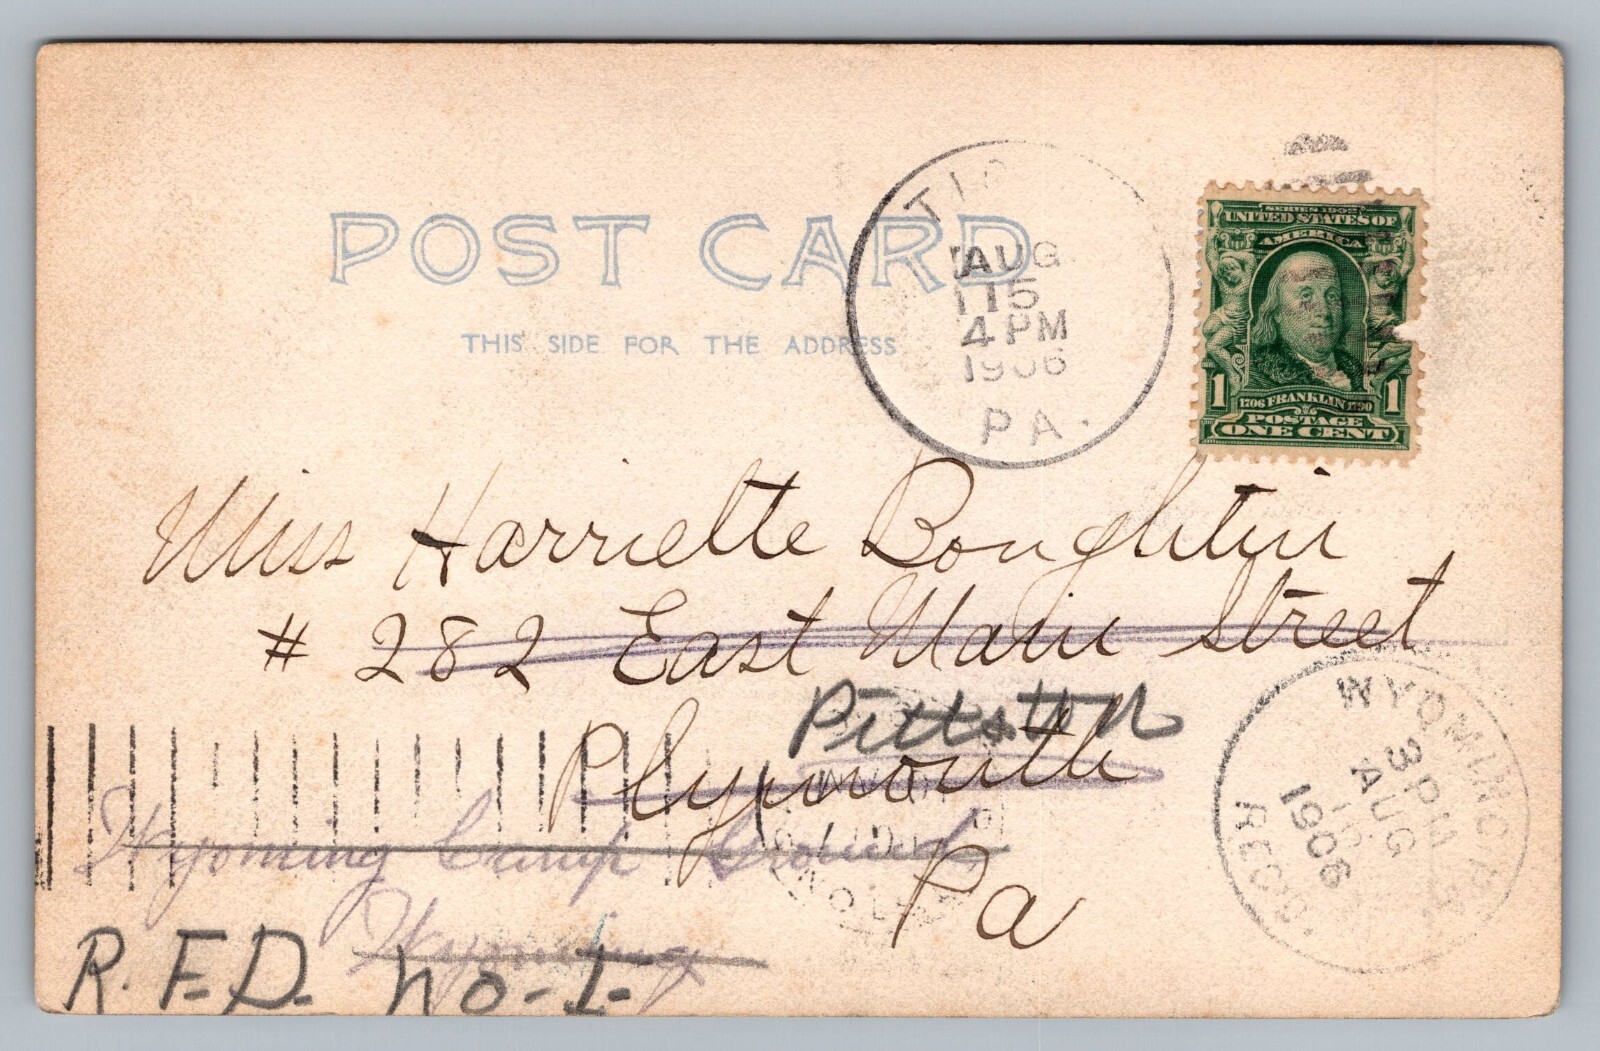 POST CARD
THIS SIDE FOR THE ADDRESS
AUG
15
4 PM
1906
PA.
SERIES 1902
UNITED STATES OF
AMERICA
1 1706 FRANKLIN 1790 1
POSTAGE
ONE CENT
Miss Harriette Boughtin
# 282 East Main Street
Pittston
Plymouth
Pa
Wyoming Camp Ground
Wyoming
R.F.D. No-1-
WYOMING, PA.
3 PM
AUG
1906
REC'D.